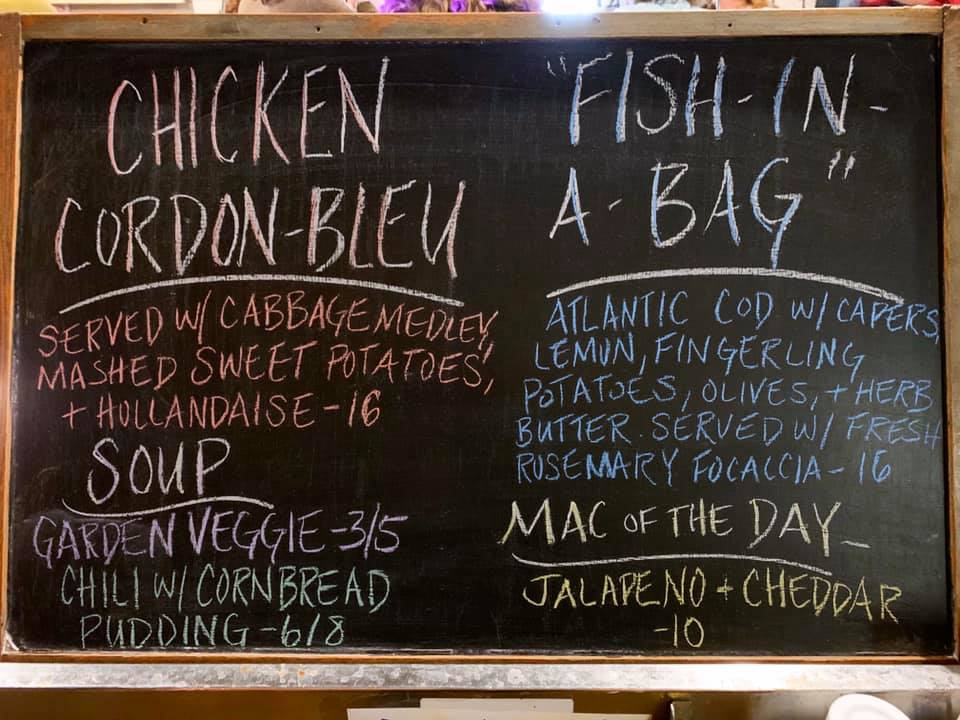 CHICKEN
CORDON-BLEU
SERVED W/ CABBAGE MEDLEY,
MASHED SWEET POTATOES,
+ HOLLANDAISE - 16
SOUP
GARDEN VEGGIE - 3/5
CHILI W/ CORNBREAD
PUDDING - 6/8
"FISH-IN-
A-BAG"
ATLANTIC COD W/ CAPERS,
LEMON, FINGERLING
POTATOES, OLIVES, + HERB
BUTTER. SERVED W/ FRESH
ROSEMARY FOCACCIA - 16
MAC OF THE DAY -
JALAPENO + CHEDDAR
-10